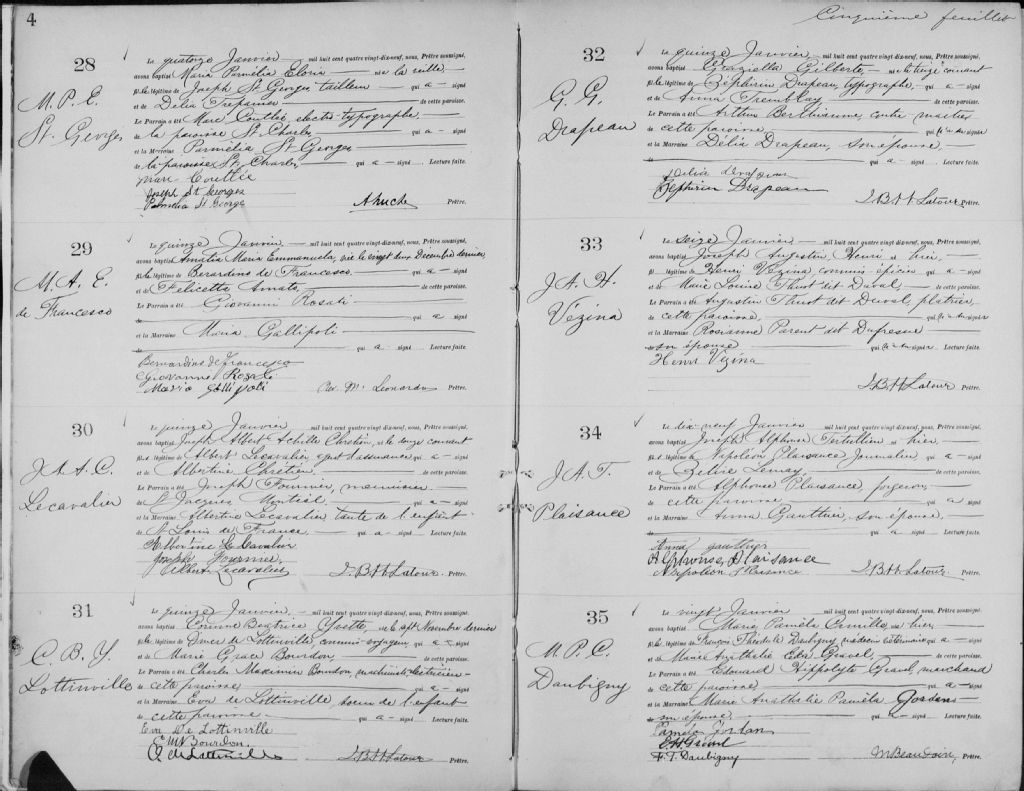 4
28
M. P. E.
St. Georges
Le quatorze Janvier mil huit cent quatre vingt-dix-neuf, nous, Prêtre soussigné,
avons baptisé Maria Parmélia Elona née la veille,
fille légitime de Joseph St Georges tailleur qui a signé
et de Délia Trepanier de cette paroisse.
Le Parrain a été Marc Couttée, electro-typographe,
de la paroisse St. Charles, qui a signé
et la Marraine Parmélia St Georges
de la paroisse St. Charles, qui a signé. Lecture faite.
Marc Couttée
Joseph St Georges
Pamelia St George
Prêtre.
29
M. A. E.
de Francesco
Le quinze Janvier mil huit cent quatre vingt-dix-neuf, nous, Prêtre soussigné,
avons baptisé Amalia Maria Emmanuela, née le vingt deux Décembre dernier,
fille légitime de Berardino de Francesco qui a signé
et de Felicetta Amato de cette paroisse.
Le Parrain a été Giovanni Rosati
de qui a signé
et la Marraine Maria Gallipoli
de qui a signé. Lecture faite.
Bernardino de Francesco
Giovanne Rosati
Maria Gallipoli
Rev. M. Leonardo Prêtre.
30
J. A. A. C.
Lecavalier
Le quinze Janvier mil huit cent quatre vingt-dix-neuf, nous, Prêtre soussigné,
avons baptisé Joseph Albert Achille Chrétien, né le douze courant
fils légitime de Albert Lecavalier agent d'assurance qui a signé
et de Albertine Chrétien de cette paroisse.
Le Parrain a été Joseph Fournier, menuisier
de St Jacques Montréal qui a signé
et la Marraine Albertine Lecavalier tante de l'enfant
de St Louis de France, qui a signé. Lecture faite.
Albertine LeCavalier
Joseph Fournier
Albert Lecavalier
J. B. A. H. Latour Prêtre.
31
C. B. Y.
Lottinville
Le quinze Janvier, mil huit cent quatre vingt-dix-neuf, nous, Prêtre soussigné,
avons baptisé Corinne Beatrice Yvette, née le sept Novembre dernier
fille légitime de de Lottinville, commis-voyageur, qui a signé
et de Marie Grace Bourdon, de cette paroisse.
Le Parrain a été Charles Maximin Bourdon, machiniste-électricien
de cette paroisse qui a signé
et la Marraine Eva de Lottinville soeur de l'enfant
de cette paroisse qui a signé. Lecture faite.
Eva De Lottinville
C. M. N. Bourdon
de Lottinville
J. B. A. H. Latour Prêtre.
Cinquième feuillet
32
G. G.
Drapeau
Le quinze Janvier mil huit cent quatre vingt-dix-neuf, nous, Prêtre soussigné,
avons baptisé Graziella Gilberte, née le treize courant
fille légitime de Zéphirin Drapeau, typographe, qui a signé
et de Anna Tremblay de cette paroisse.
Le Parrain a été Arthur Berthiaume, contre maître
de cette paroisse, qui
et la Marraine Délia Drapeau, son épouse,
de qui a signé. Lecture faite.
Délia Drapeau
Zéphirin Drapeau
J. B. A. H. Latour Prêtre.
33
J. A. H.
Vézina
Le seize Janvier mil huit cent quatre vingt-dix-neuf, nous, Prêtre soussigné,
avons baptisé Joseph Augustin Henri né hier,
fils légitime de Henri Vézina, commis épicier qui a signé
et de Marie Louise Thuot dit Duval, de cette paroisse.
Le Parrain a été Augustin Thuot dit Duval, platrier,
de cette paroisse, qui
et la Marraine Rosianne Parent dit Dufresne
de son épouse qui Lecture faite.
Henri Vézina
J. B. A. H. Latour Prêtre.
34
J. A. T.
Plaisance
Le dix-neuf Janvier mil huit cent quatre vingt-dix-neuf, nous, Prêtre soussigné,
avons baptisé Joseph Alphonse Tertullien né hier,
fils légitime de Napoléon Plaisance Journalier qui a signé
et de Zelire Lemay, de cette paroisse.
Le Parrain a été Alphonse Plaisance, forgeron,
de cette paroisse qui a signé
et la Marraine Anna Gauthier, son épouse,
de qui a signé. Lecture faite.
Anna gauthier
Alphonse Plaisance
Napoleon Plaisance
J. B. A. H. Latour Prêtre.
35
M. P. C.
Daubigny
Le vingt Janvier mil huit cent quatre vingt-dix-neuf, nous, Prêtre soussigné,
avons baptisé Marie Paméla Camille, née hier,
fille légitime de François Théodule Daubigny médecin vétérinaire qui a signé
et de Marie Anathalie Gravel, de cette paroisse.
Le Parrain a été Edouard Hippolyte Gravel, marchand
de cette paroisse, qui a signé
et la Marraine Marie Anathalie Paméla Jordan
de son épouse. qui a signé. Lecture faite.
Pamela Jordan
E. H. Gravel
F. T. Daubigny
Beaudoin, Prêtre.